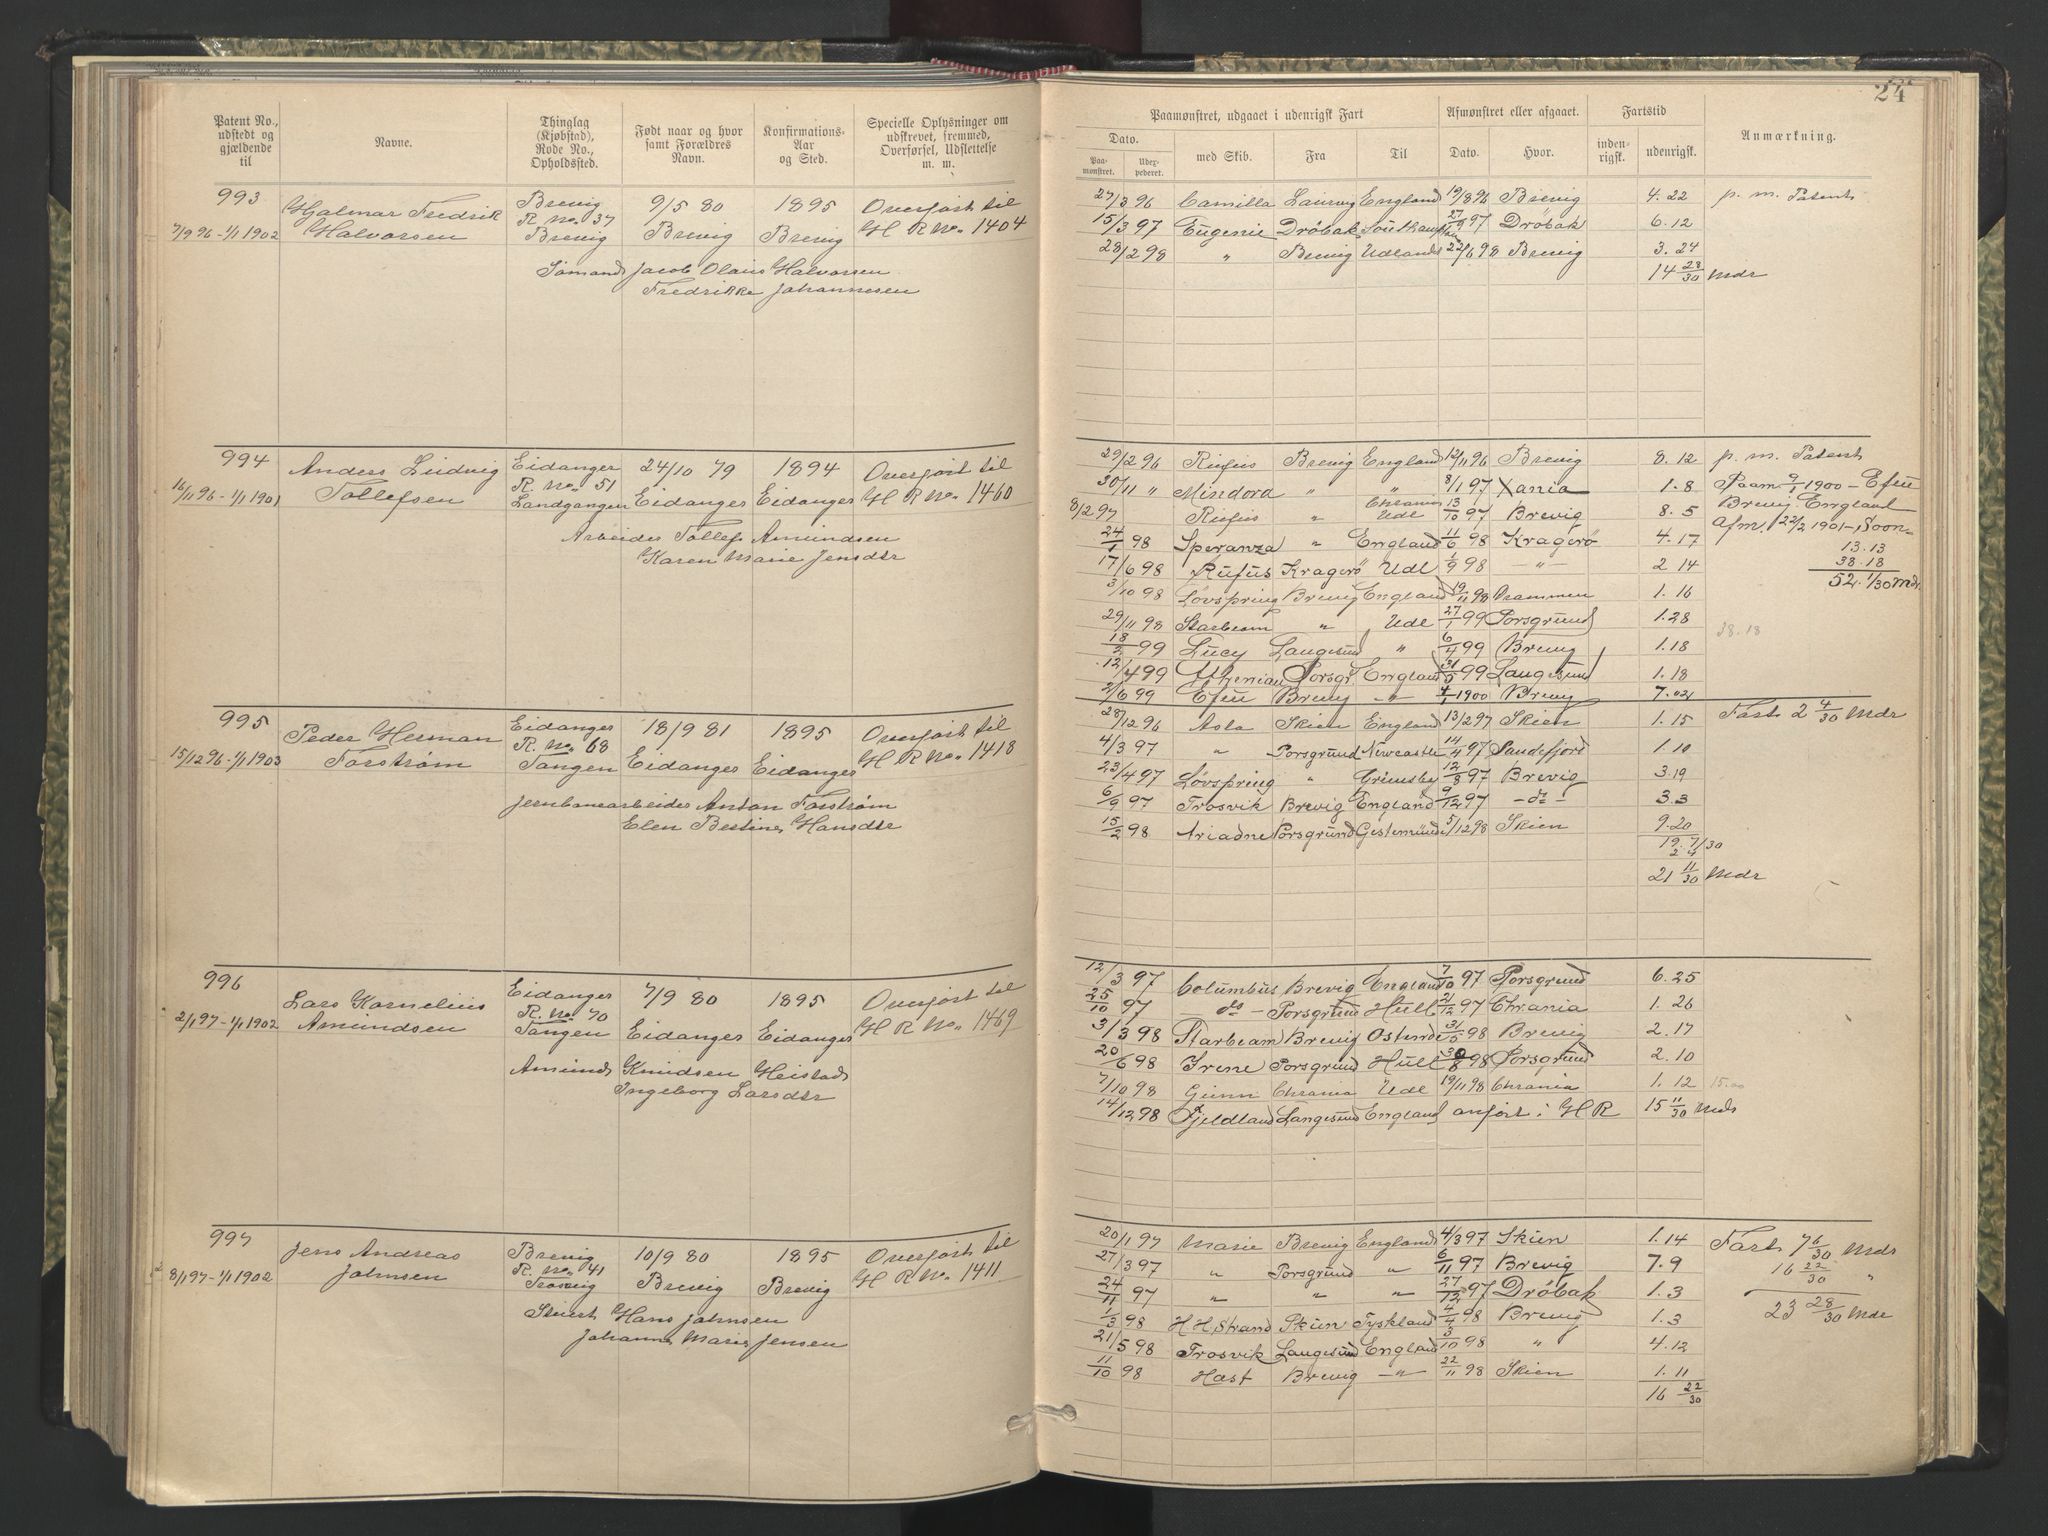 24
Patent No., udstedt og gjældende til
Navne.
Thinglag (Kjøbstad), Rode No., Opholdssted.
Født naar og hvor samt Forældres Navn.
Konfirmations-Aar og Sted.
Specielle Oplysninger om udskrevet, fremmed, Overførsel, Udslettelse m. m.
Paamønstret, udgaaet i udenrigsk Fart
Afmønstret eller afgaaet.
Fartstid
Anmærkning.
Dato.
Paamønstret.
Udexpederet.
med Skib.
Fra
Til
Dato.
Hvor.
indenrigsk.
udenrigsk.
993 Hjalmar Fredrik Brevig 9/5 80 1895 Overført til
7/9 96 - 1/1 1902 Halvorsen R. No. 37 Brevig Brevig Brevig H R No. 1404
Sømand Jacob Olaus Halvorsen
Fredrikke Johannesen
27/3 96 Camilla Laurvig England 19/8 96 Brevig 4. 22 p. m. Patent
15/3 97 Eugenie Drøbak 97 Drøbak 6. 12
28/2 98 " Brevig Udlandet 22/6 98 Brevig 3. 24
14 28/30 Mdr
994 Anders Ludvig Eidanger 24/10 79 1894 Overført til
16/11 96 - 1/1 1901 Tollefsen R. No. 51 Landgangen Eidanger Eidanger H R No. 1460
Arbeider Tollef Amundsen
Karen Marie Jensdtr
29/2 96 Rufus Brevig England 12/11 96 Brevig 8. 12 p. m. Patent
30/11 " Mindora " " 8/1 97 Xania 1. 8 Paam. 9/1 1900 - Efeu
8/2 97 Rufus " Chrania Udl 13/10 97 Brevig 8. 5 Brevig England
24/1 98 Speranza " England 11/6 98 Kragerø 4. 17 Afm. 22/2 1901 - Soon
13. 13
17/6 98 Rufus Kragerø Udl 1/9 98 - " - 2. 14 38. 18
52. 1/30 Mdr.
3/10 98 Løvspring Brevig England 19/11 98 Drammen 1. 16
29/11 98 Starbeam " Udl 27/1 99 Porsgrund 1. 28 38. 18
18/2 99 Lucy Langesund " 6/4 99 Brevig 1. 18
12/4 99 Athenian Porsgr. England 31/5 99 Langesund 1. 18
2/6 99 Efeu Brevig - " - 4/1 1900 Brevig 7. 02
995 Peder Herman Eidanger 18/9 81 1895 Overført til
15/12 96 - 1/1 1903 Forstrøm R. No. 68 Tangen Eidanger Eidanger H R No. 1418
Jernbanearbeider Anton Forstrøm
Elen Bestine Hansdtr
28/12 96 Asla Skien England 13/2 97 Skien 1. 15 Fart 2 4/30 Mdr
4/3 97 " Porsgrund Newcastle 14/4 97 Sandefjord 1. 10
23/4 97 Løvspring " Grimsby 12/8 97 Brevig 3. 19
6/9 97 Trosvik Brevig England 9/12 97 - do - 3. 3
15/2 98 Ariadne Porsgrund Gestemünde 5/12 98 Skien 9. 20
19. 7/30
2 4
21 11/30 Mdr
996 Lars Kornelius Eidanger 7/9 80 1895 Overført til
2/1 97 - 1/1 1902 Amundsen R. No. 70 Tangen Eidanger Eidanger H R No. 1469
Amund Knudsen Heistad
Ingeborg Larsdtr
12/3 97 Columbus Brevig England 7/10 97 Porsgrund 6. 25
25/10 97 - do - Porsgrund Hull 21/12 97 Chrania 1. 26
3/3 98 Starbeam Brevig Ostende 31/5 98 Brevig 2. 17
20/6 98 Irene Porsgrund Hull 30/8 98 Porsgrund 2. 10
7/10 98 Gunn Chrania Udl 19/11 98 Chrania 1. 12 15.00
14/12 98 Fjeldland Langesund England anført i H R 15 11/30 Mdr
997 Jens Andreas Brevig 10/9 80 1895 Overført til
8/1 97 - 1/1 1902 Johnsen R. No. 41 Trosvig Brevig Brevig H R No. 1411
Stuert Hans Johnsen
Johanne Marie Jensen
20/1 97 Marie Brevig England 4/3 97 Skien 1. 14 Fart 7 6/30 Mdr
27/3 97 " Porsgrund " 6/11 97 Brevig 7. 9 16 22/30 "
24/11 97 " " " 27/12 97 Drøbak 1. 3
1/3 98 H. H. Strand Skien Tyskland 4/4 98 Brevig 1. 3 23 28/30 Mdr
21/5 98 Trosvik Langesund England 3/10 98 " 4. 12
11/10 98 Hast Brevig - " - 22/11 98 Skien 1. 11
16 22/30